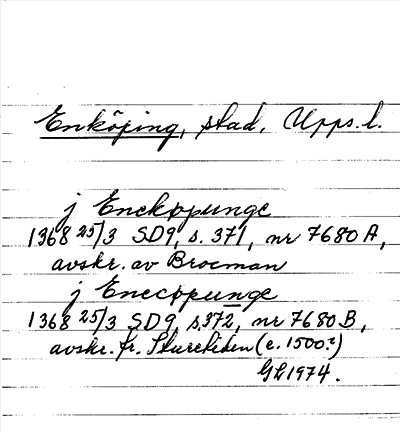 Enköping, stad, Upps. l.
j Enckøpunge
1368 25/3 SD9, s. 371, nr 7680 A,
avskr. av Brocman
j Enecopunge
1368 25/3 SD9, s. 372, nr 7680 B,
avskr. fr. (c. 1500?)
GL 1974.